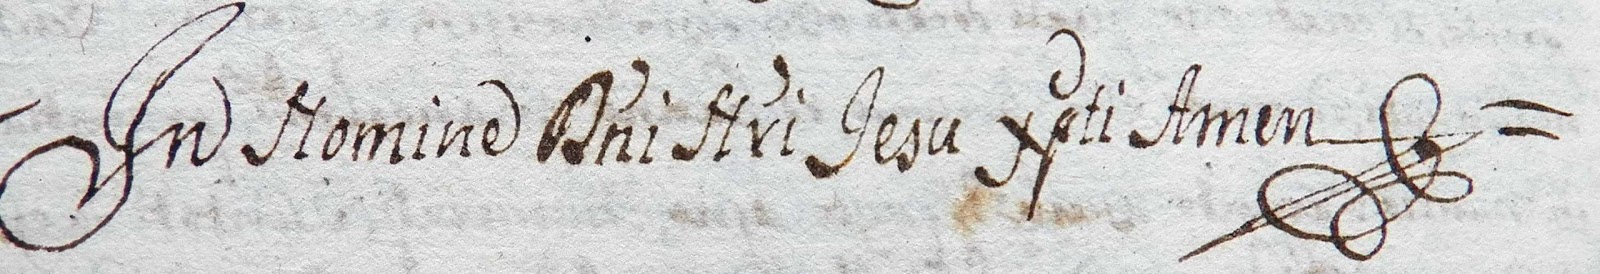 In Nomine Dni Nri Jesu Xpti Amen =